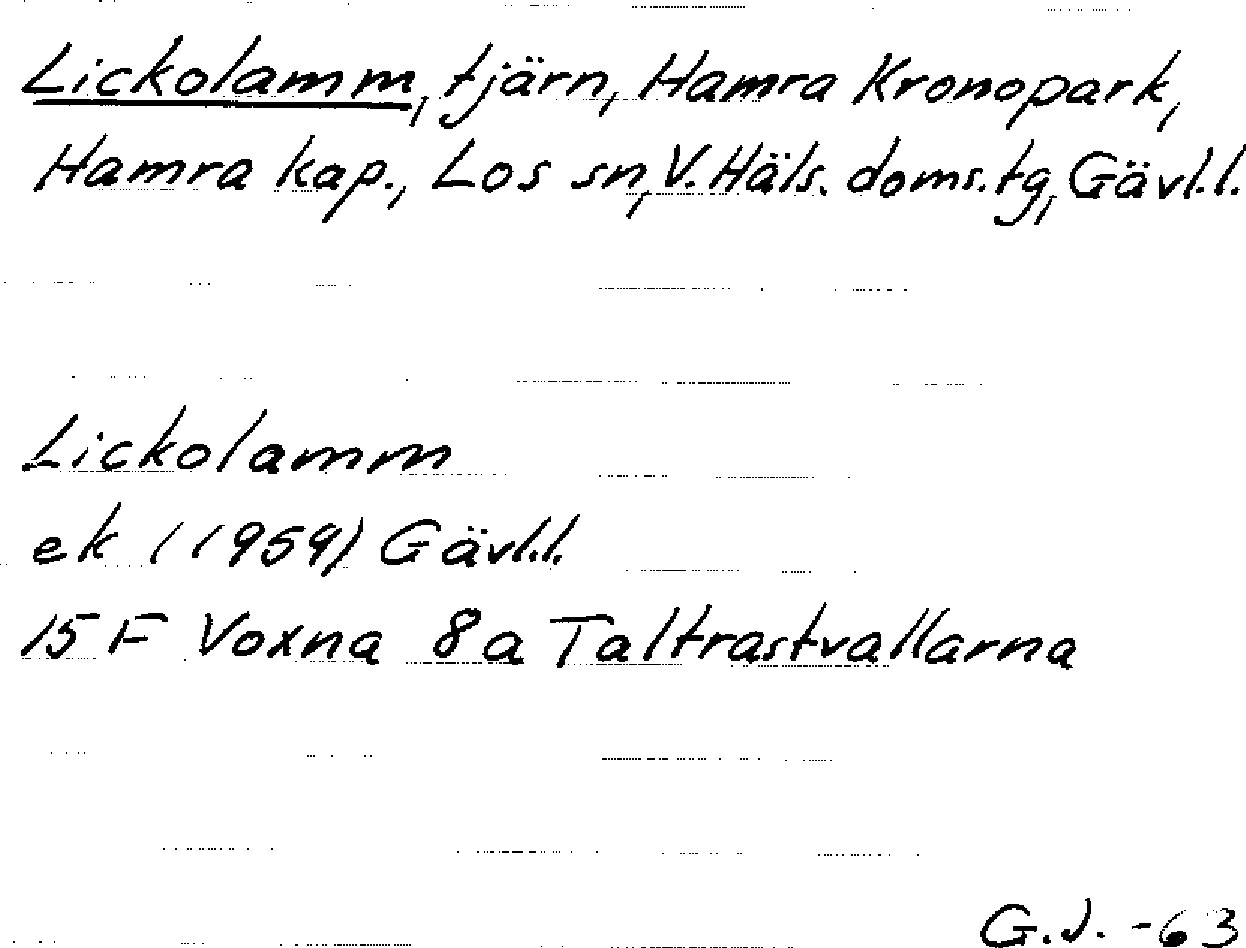 Lickolamm, tjärn, Hamra Kronopark,
Hamra kap., Los sn, V. Häls. doms.tg, Gävl.l.
Lickolamm
ek (1959) Gävl.l.
15 F Voxna 8a Taltrastvallarna
G.J. -63